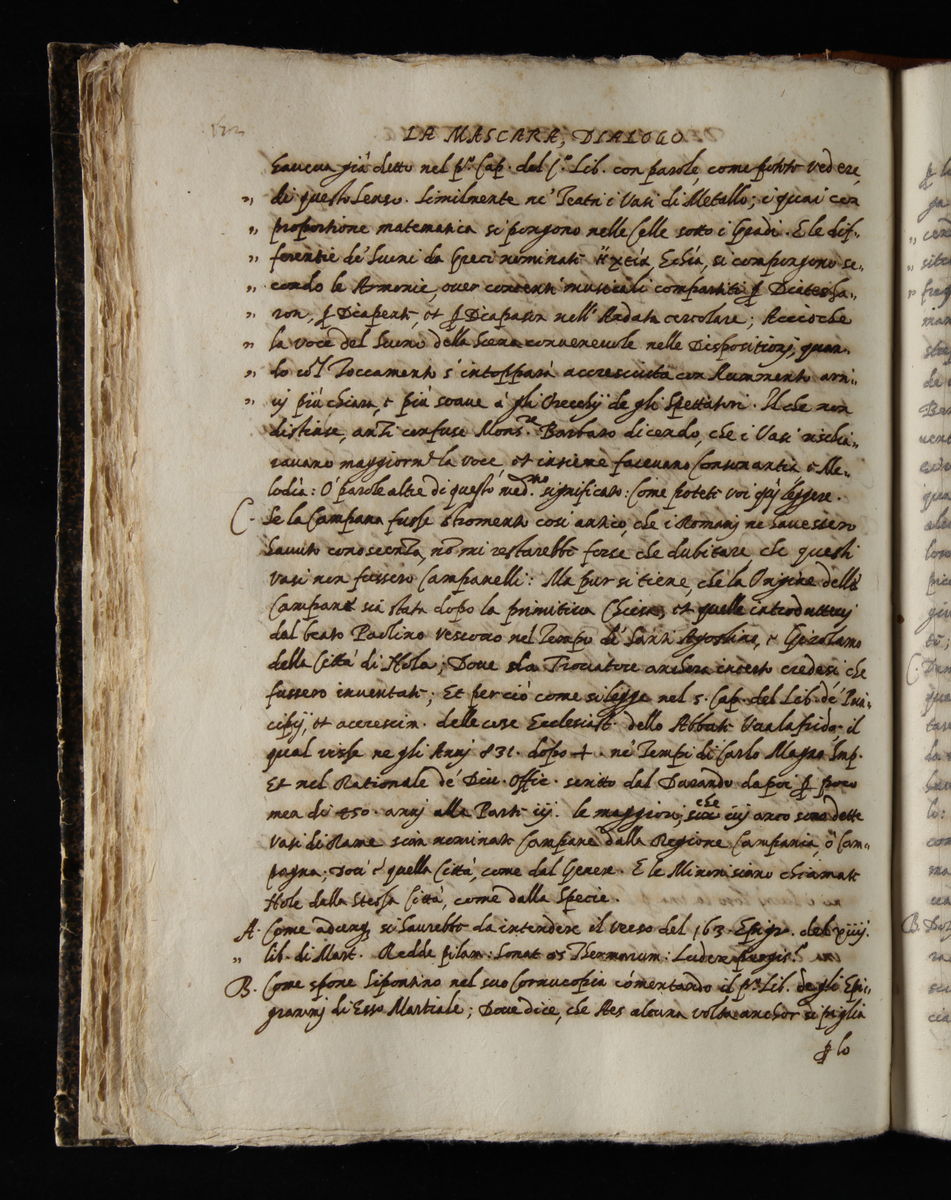 122
LA MASCARA, DIALOGO
Haueua già detto nel p.º Cap. del p.º Lib. con parole, come potete vedere,
„ di questo senso. Similmente ne' Teatri i Vasi di Metallo; i quai con
„ proportione matematica si pongono nelle Celle sotto i Gradi. E le dif-
„ ferentie de' Suoni da Greci nominati ἠχεῖα, Echia, si compongono se-
„ condo le Armonie, ouer concenti musicali compartiti ꝑ Diatessa-
„ ron, ꝑ Diapente, et ꝑ Diapason nell' Andata circolare; Accioche
„ la voce del Suono della Scena conueneuole nelle Dispositionj, quan-
„ do col Toccamento s' intopparà accresciuta con Aummento arri-
„ uj più chiara, e più soaue à gli Orecchij de gli Spettatori. Il che non
distinse, anzi confuse Mons.re Barbaro dicendo, che i Vasi rischia-
rauano maggiorm.te la voce, et insieme faceuano Consonantia e Me-
lodia: O' parole altre di questo med.mo significato: Come potete voi quj leggere.
C. Se la Campana fusse stromento così antico, che i Romanj ne hauessero
hauuto conoscenza, nõ mi restarebbe forse che dubitare che questi
vasi non fussero Campanelli: Ma pur si tiene, che la Origine delle
Campane sia stata dopo la primitiua Chiesa, et quelle introdutteuj
dal beato Paolino Vescouo nel Tempo di Santi Agostino, e Girolamo
della Città di Nola; Doue la ancora intesto credesi che
fussero inuentate; Et perciò come si legge nel 5. Cap. del Lib. de' Prin-
cipij, et accrescim. delle cose Ecclesiast. dello Abbate Vualafrido il
qual visse ne gli Annj 831. dopo + ne' Tempi di Carlo Magno Imp.
Et nel Rationale de' Diu. Offic. scritto dal Durando da poi ꝑ poco
men di 450. annj alla Parte iij. le maggiorj, che iuj anco sono dette
Vasi di Rame sian nominate Campane dalla Regione Campania, ò Cam-
pagna; Doue è quella Città, come dal Genere. E le Minori siano chiamate
Nole dalla stessa Città, come dalla Specie.
A. Come adunq; si haurebbe da intendere il verso del 163. Epigr. del xiiij.
„ lib. di Mart. Redde pilam: Sonat æs Thermarum: Ludere pergis?
B. Come spone Sipontino nel suo Cornucopia comentando il p.º Lib. degli Epi-
grammj di Esso Martiale; Doue dice, che Aes alcuna volta anchor si piglia
ꝑ lo